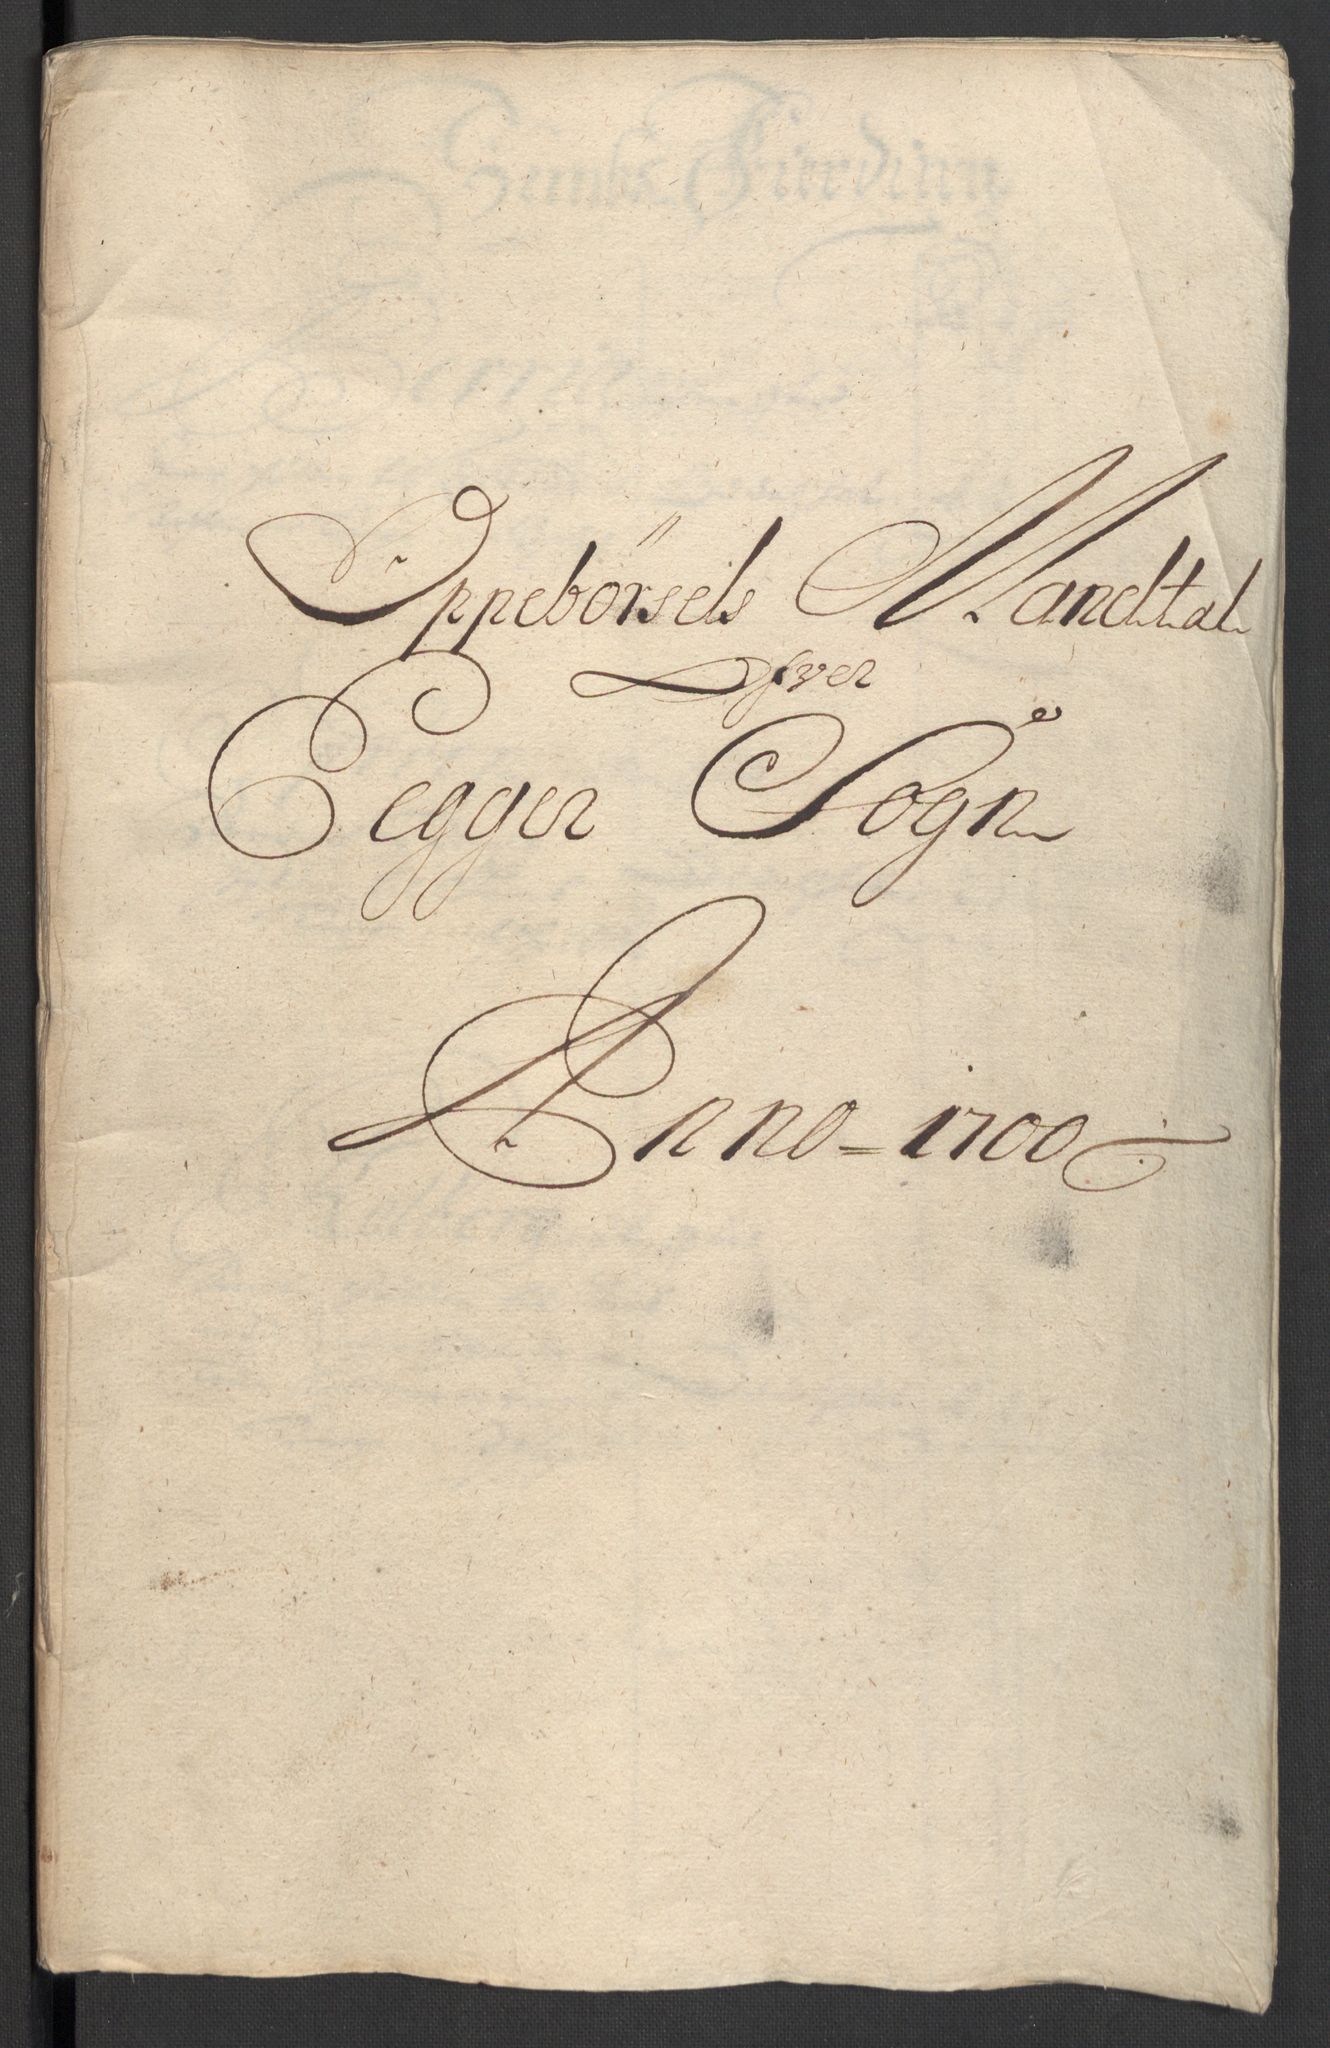 Oppebörsels Mandtal
ofver
Egger Sogn
Anno = 1700